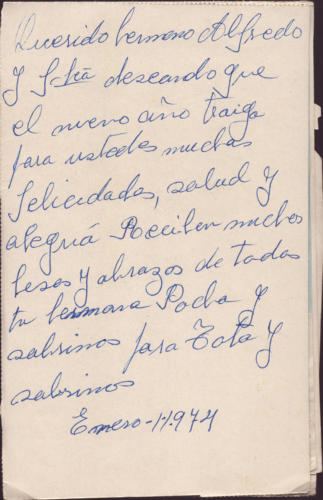 Querido hermano Alfredo
y Sra deseando que
el nuevo año traiga
para ustedes muchas
felicidades, salud y
alegriá Reciben muchos
besos y abrazos de todos
tu hermana Pocha y
sobrinos para Tota y
sobrinos
Enero-1-1974